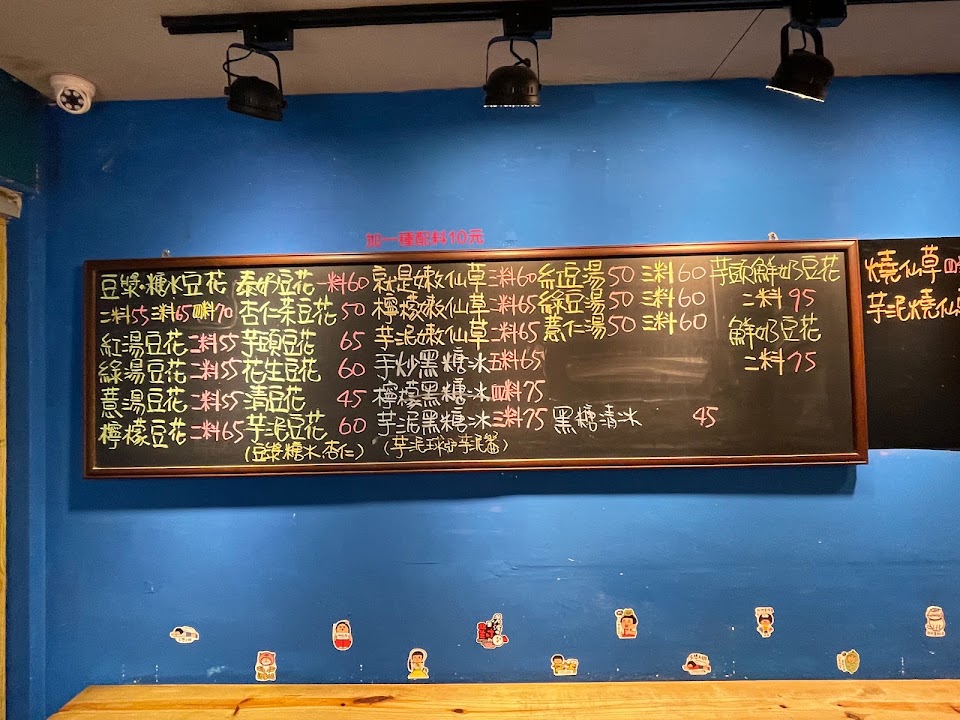 加一種配料10元
豆漿.糖水豆花
二料55三料65四料70
紅湯豆花二料55
綠湯豆花二料55
薏湯豆花二料55
檸檬豆花二料65
泰奶豆花一料60
杏仁茶豆花50
芋頭豆花65
花生豆花60
清豆花45
芋泥豆花60
(豆漿.糖水.杏仁)
就是嫩仙草三料60
檸檬嫩仙草三料65
芋泥嫩仙草三料65
手炒黑糖冰五料65
檸檬黑糖冰四料75
芋泥黑糖冰三料75
紅豆湯50三料60
綠豆湯50三料60
薏仁湯50三料60
黑糖清冰45
芋頭鮮奶豆花
二料95
鮮奶豆花
二料75
燒仙草
芋泥燒仙